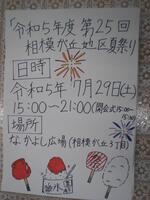 「令和5年度 第25回
相模が丘地区夏祭り
日時
令和5年 7月29日(土)
15:00〜21:00 (開会式15:00〜
場所
なかよし広場 (相模が丘3丁目)